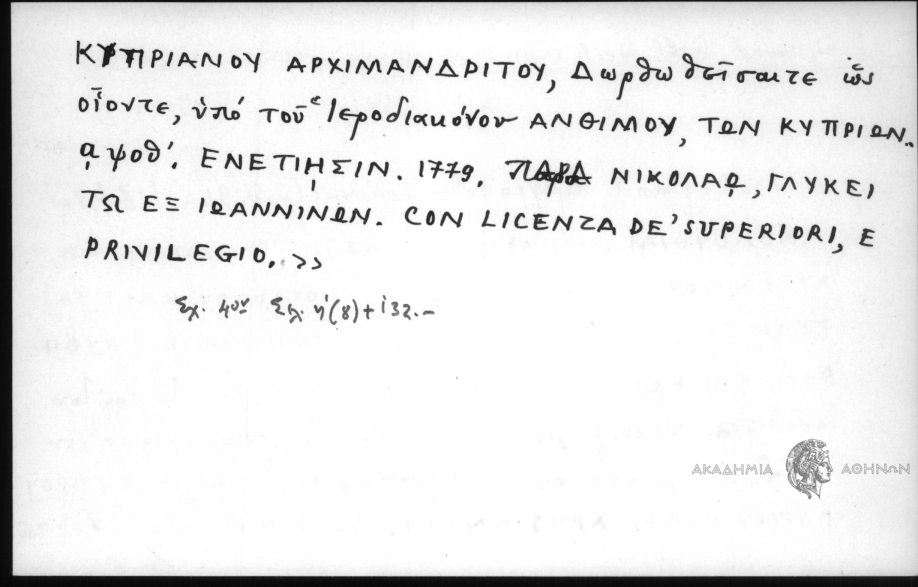 ΚΥΠΡΙΑΝΟΥ ΑΡΧΙΜΑΝΔΡΙΤΟΥ, Δωρθωθεῖσαιτε ὡς
οἷοντε, ὑπό τοῦ Ἱεροδιακόνου ΑΝΘΙΜΟΥ, ΤΩΝ ΚΥΠΡΙΩΝ.
ᾳψοθ΄. ΕΝΕΤΙΗΣΙΝ. 1779. ΠΑΡΑ ΝΙΚΟΛΑῼ, ΓΛΥΚΕΙ
ΤΩ ΕΞ ΙΩΑΝΝΙΝΩΝ. CON LICENZA DE' SUPERIORI, E
PRIVILEGIO. >>
Σχ. 4ον Σελ. η΄(8)+132.-
ΑΚΑΔΗΜΙΑ ΑΘΗΝΩΝ